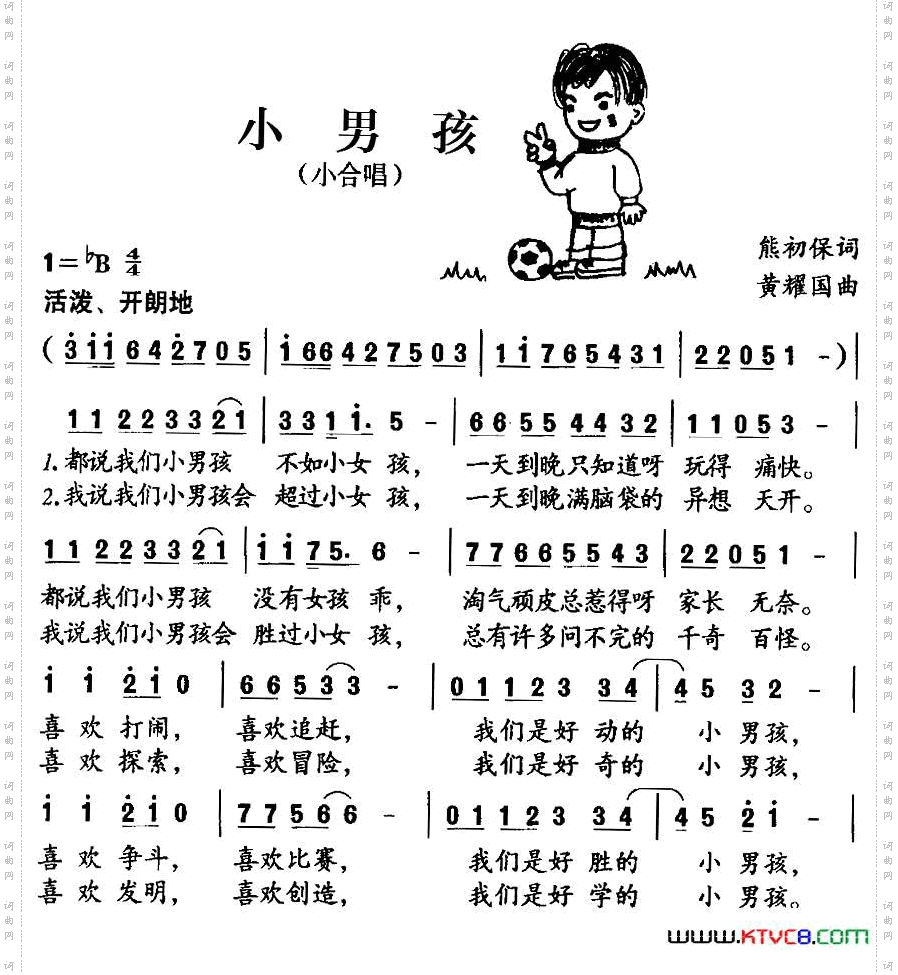 小 男 孩
（小合唱）
1=♭B 4/4
熊初保词
活泼、开朗地
黄耀国曲
( 3̇ i̇ i̇ 6 4 2̇ 7 0 5 | i̇ 6 6 4 2 7 5 0 3 | 1 i̇ 7 6 5 4 3 1 | 2 2 0 5 1 - ) |
1 1 2 2 3 3 2 1 | 3 3 1 i̇. 5 - | 6 6 5 5 4 4 3 2 | 1 1 0 5 3 - |
1.都说我们小男孩 不如小女 孩， 一天到晚只知道呀 玩得 痛快。
2.我说我们小男孩会 超过小女 孩， 一天到晚满脑袋的 异想 天开。
1 1 2 2 3 3 2 1 | i̇ i̇ 7 5. 6 - | 7 7 6 6 5 5 4 3 | 2 2 0 5 1 - |
都说我们小男孩 没有女孩 乖， 淘气顽皮总惹得呀 家长 无奈。
我说我们小男孩会 胜过小女 孩， 总有许多问不完的 千奇 百怪。
i̇ i̇ 2̇ i̇ 0 | 6 6 5 3 3 - | 0 1 1 2 3 3 4 | 4 5 3 2 - |
喜 欢 打闹， 喜欢追赶， 我们是好 动的 小 男孩，
喜 欢 探索， 喜欢冒险， 我们是好 奇的 小 男孩，
i̇ i̇ 2̇ i̇ 0 | 7 7 5 6 6 - | 0 1 1 2 3 3 4 | 4 5 2̇ i̇ - |
喜 欢 争斗， 喜欢比赛， 我们是好 胜的 小 男孩，
喜 欢 发明， 喜欢创造， 我们是好 学的 小 男孩。
www.KTVC8.com
词曲网